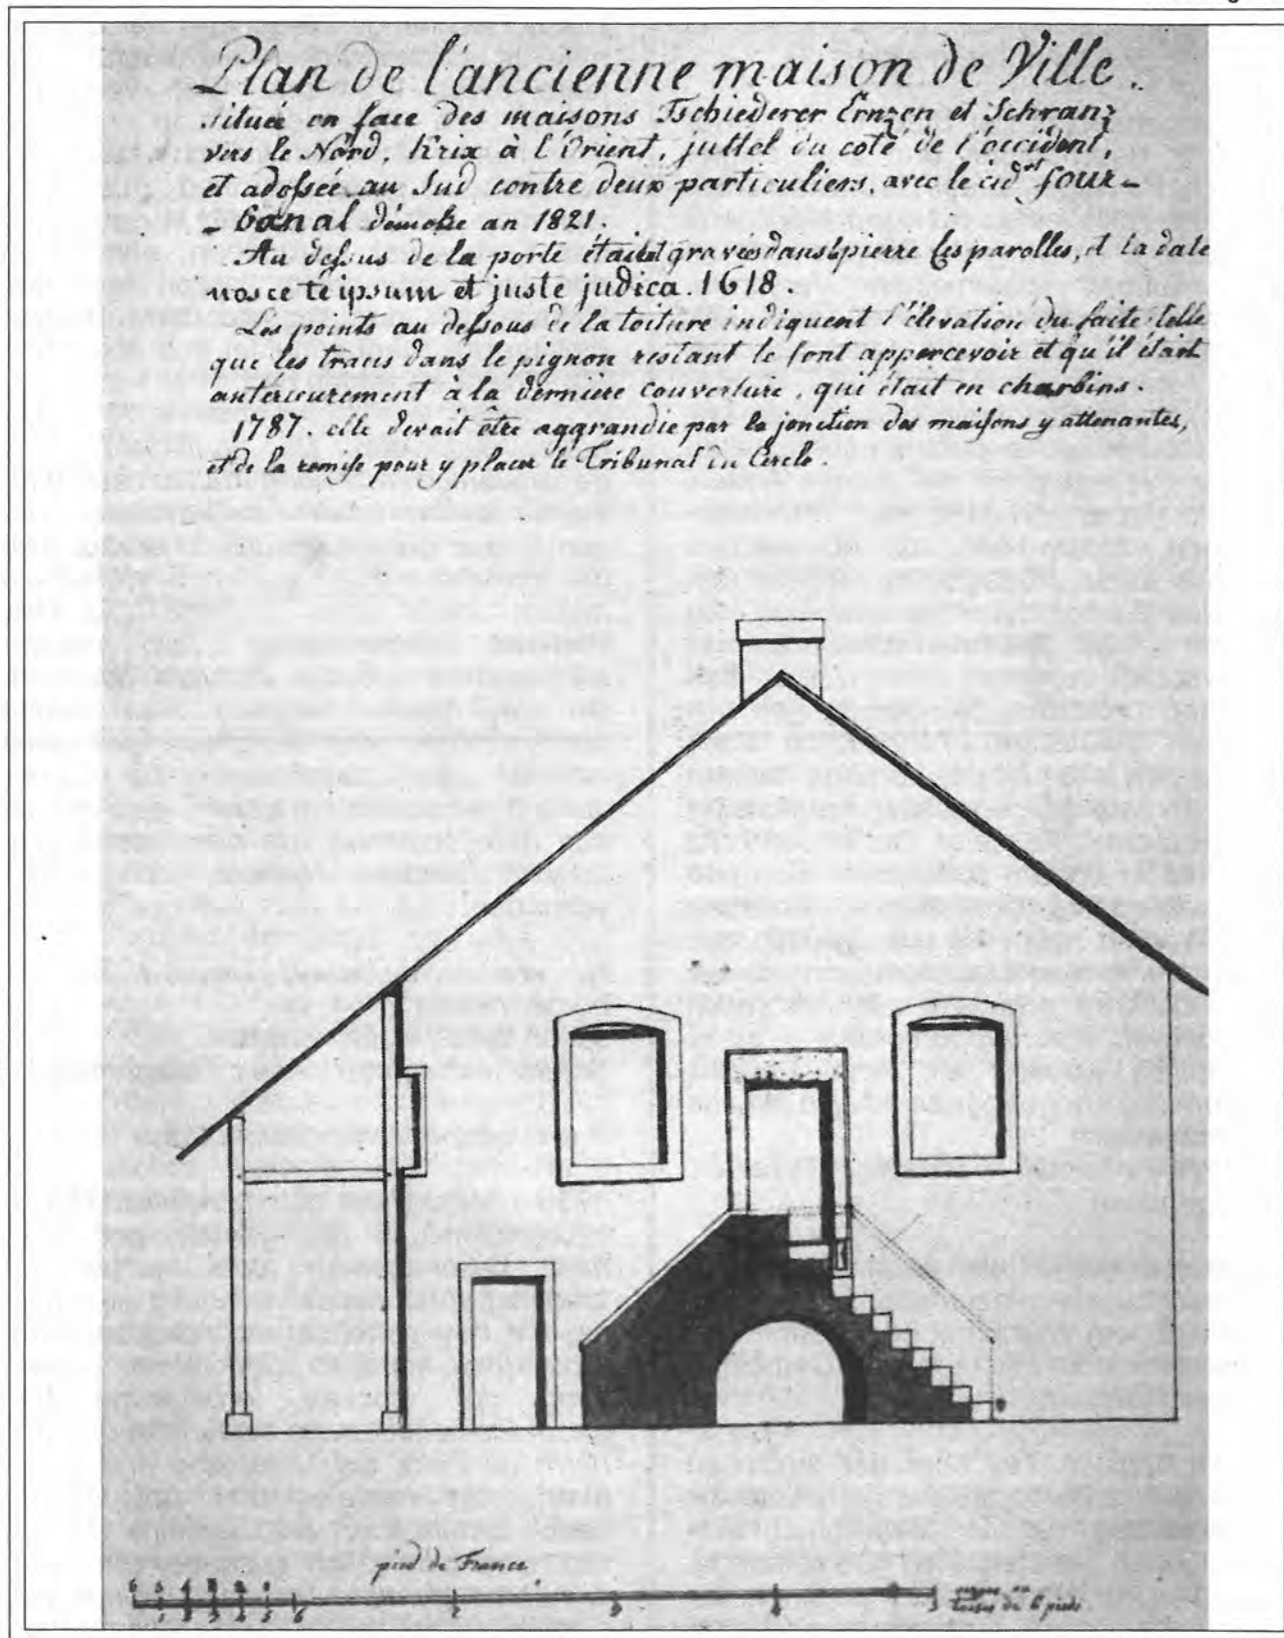 Plan de l'ancienne maison de Ville.
située en face des maisons Tschiederer Ernzen et Schranz
vers le Nord, Krix à l'Orient, juttel du coté de l'occident,
et adossée au Sud contre deux particuliers, avec le cid.nt four-
- banal démolie an 1821.
Au dessus de la porte étaient gravés dans le pierre les parolles, et la date
nosce te ipsum et juste judica. 1618.
Les points au dessous de la toiture indiquent l'élevation du faite telle
que les traces dans le pignon restant le font appercevoir et qu'il était
antérieurement à la derniere couverture, qui était en charbins.
1787. elle devait être aggrandie par la jonction des maisons y attenantes,
et de la remise pour y placer le Tribunal du Cercle.
pied de France
6 5 4 3 2 1
1 2 3 4 5 6 2 3 4 5
toises de 6 pieds